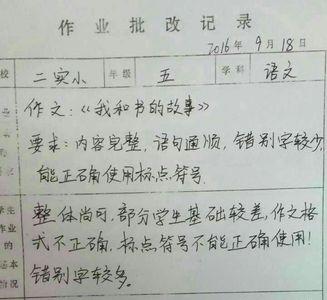 作业批改记录
2016年9月18日
校 二实小 年级 五 学科 语文
作文:《我和书的故事》
要求:内容完整,语句通顺,错别字较少,
能正确使用标点符号.
学生
作业
的
基本
情况
整体尚可,部分学生基础较差,作文格
式不正确.标点符号不能正确使用!
错别字较多.